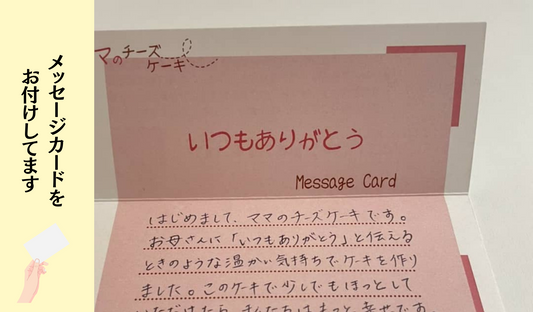 メッセージカードを
お付けしてます
マのチーズ
ケーキ
いつもありがとう
Message Card
はじめまして、ママのチーズケーキです。
お母さんに「いつもありがとう」と伝える
ときのような温かい気持ちでケーキを作り
ました。このケーキで少しでもほっとして
いただけたら、私たちはもっと幸せです。